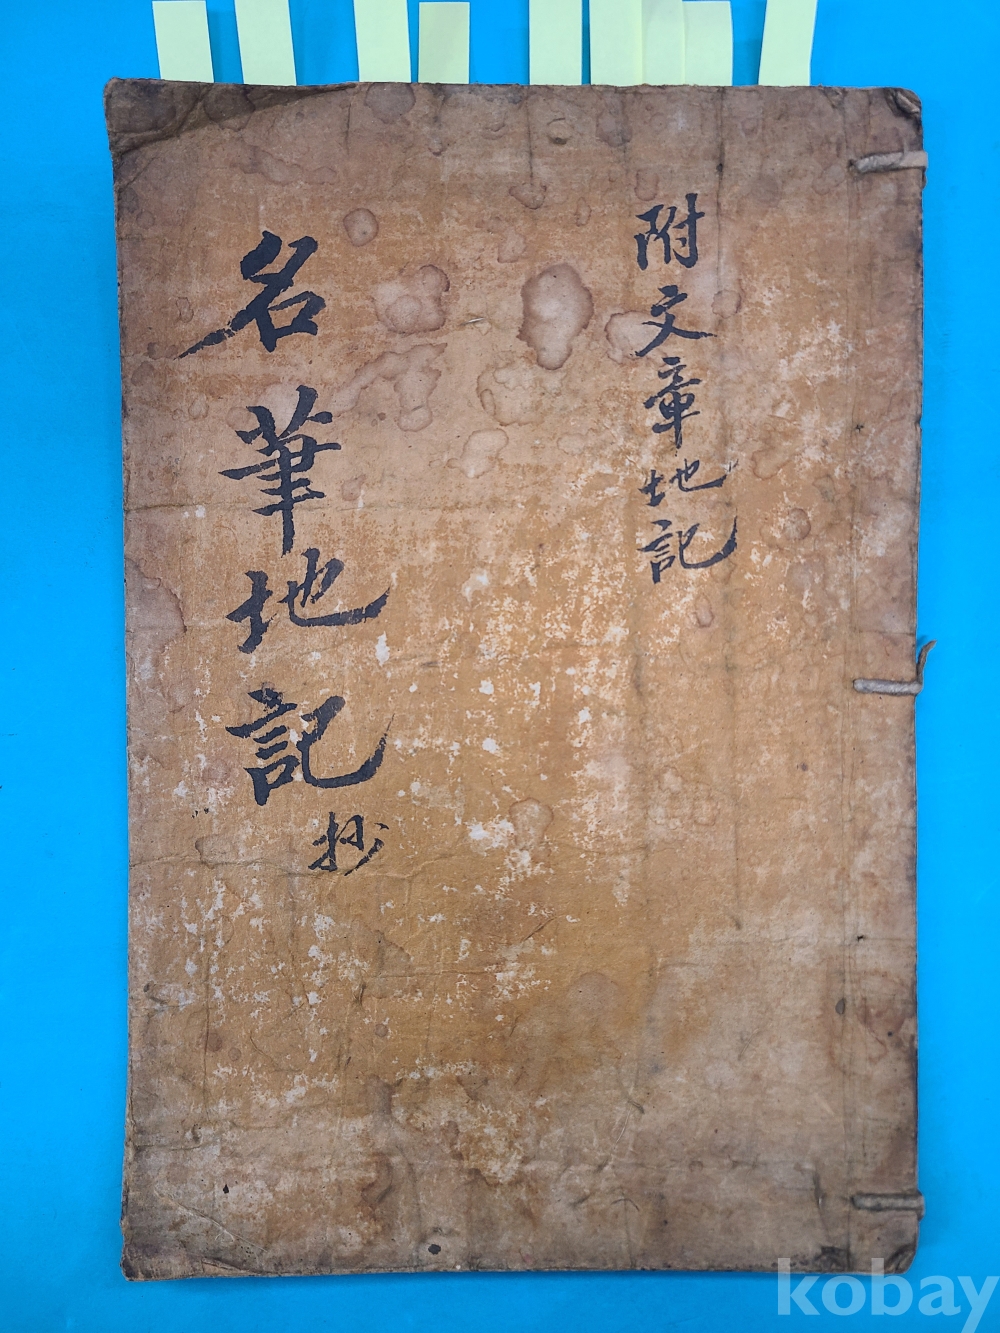 附文章地記
名筆地記抄
kobay